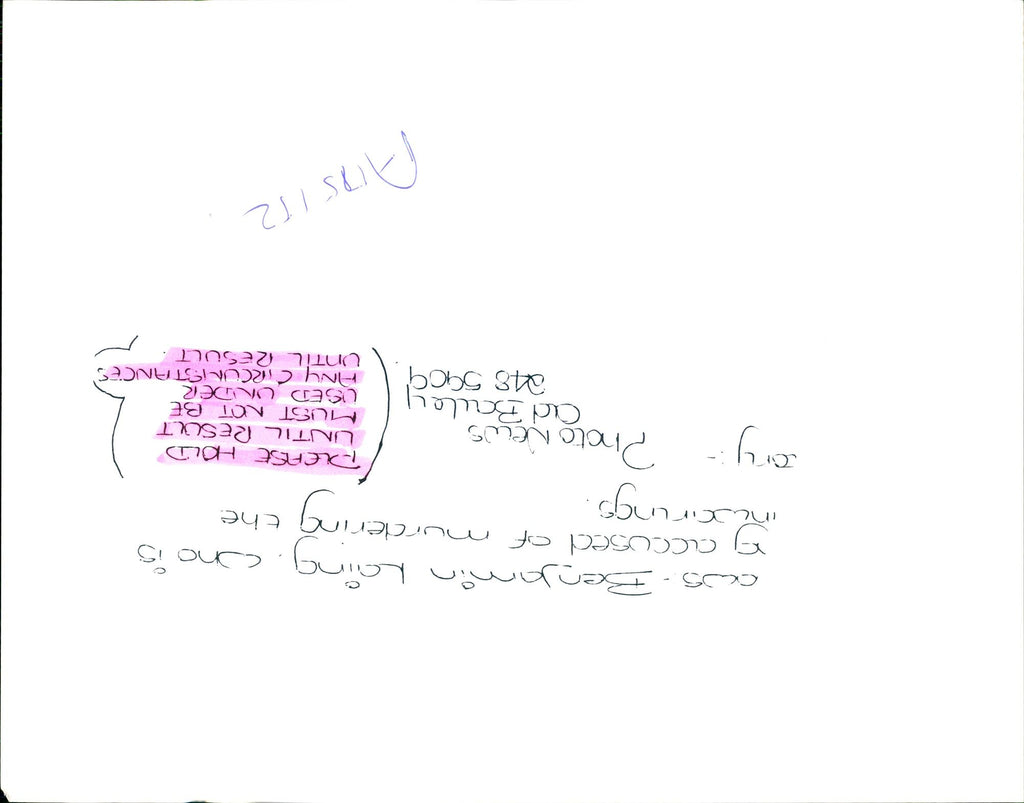 Benjamin Laing. who is
accused of murdering the
Photo News
Old Bailey
248 5909
PLEASE HOLD
UNTIL RESULT
MUST NOT BE
USED UNDER
ANY CIRCUMSTANCES
UNTIL RESULT